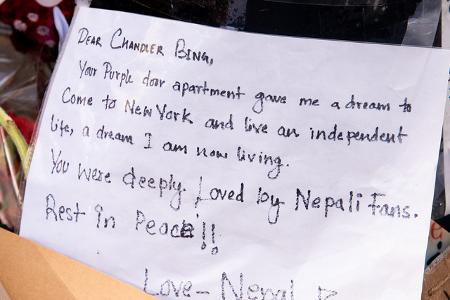 Dear Chandler Bing,
Your Purple door apartment gave me a dream to
Come to New York and live an independent
life, a dream I am now living.
You were deeply Loved by Nepali Fans.
Rest in Peace!!
Love- Nepal